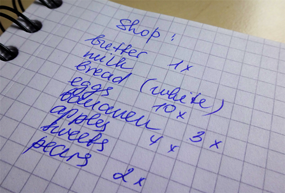 Shop:
butter
milk 1x
bread (white)
eggs 10x
bananen 3x
apples 4x
sweets
pears 2x